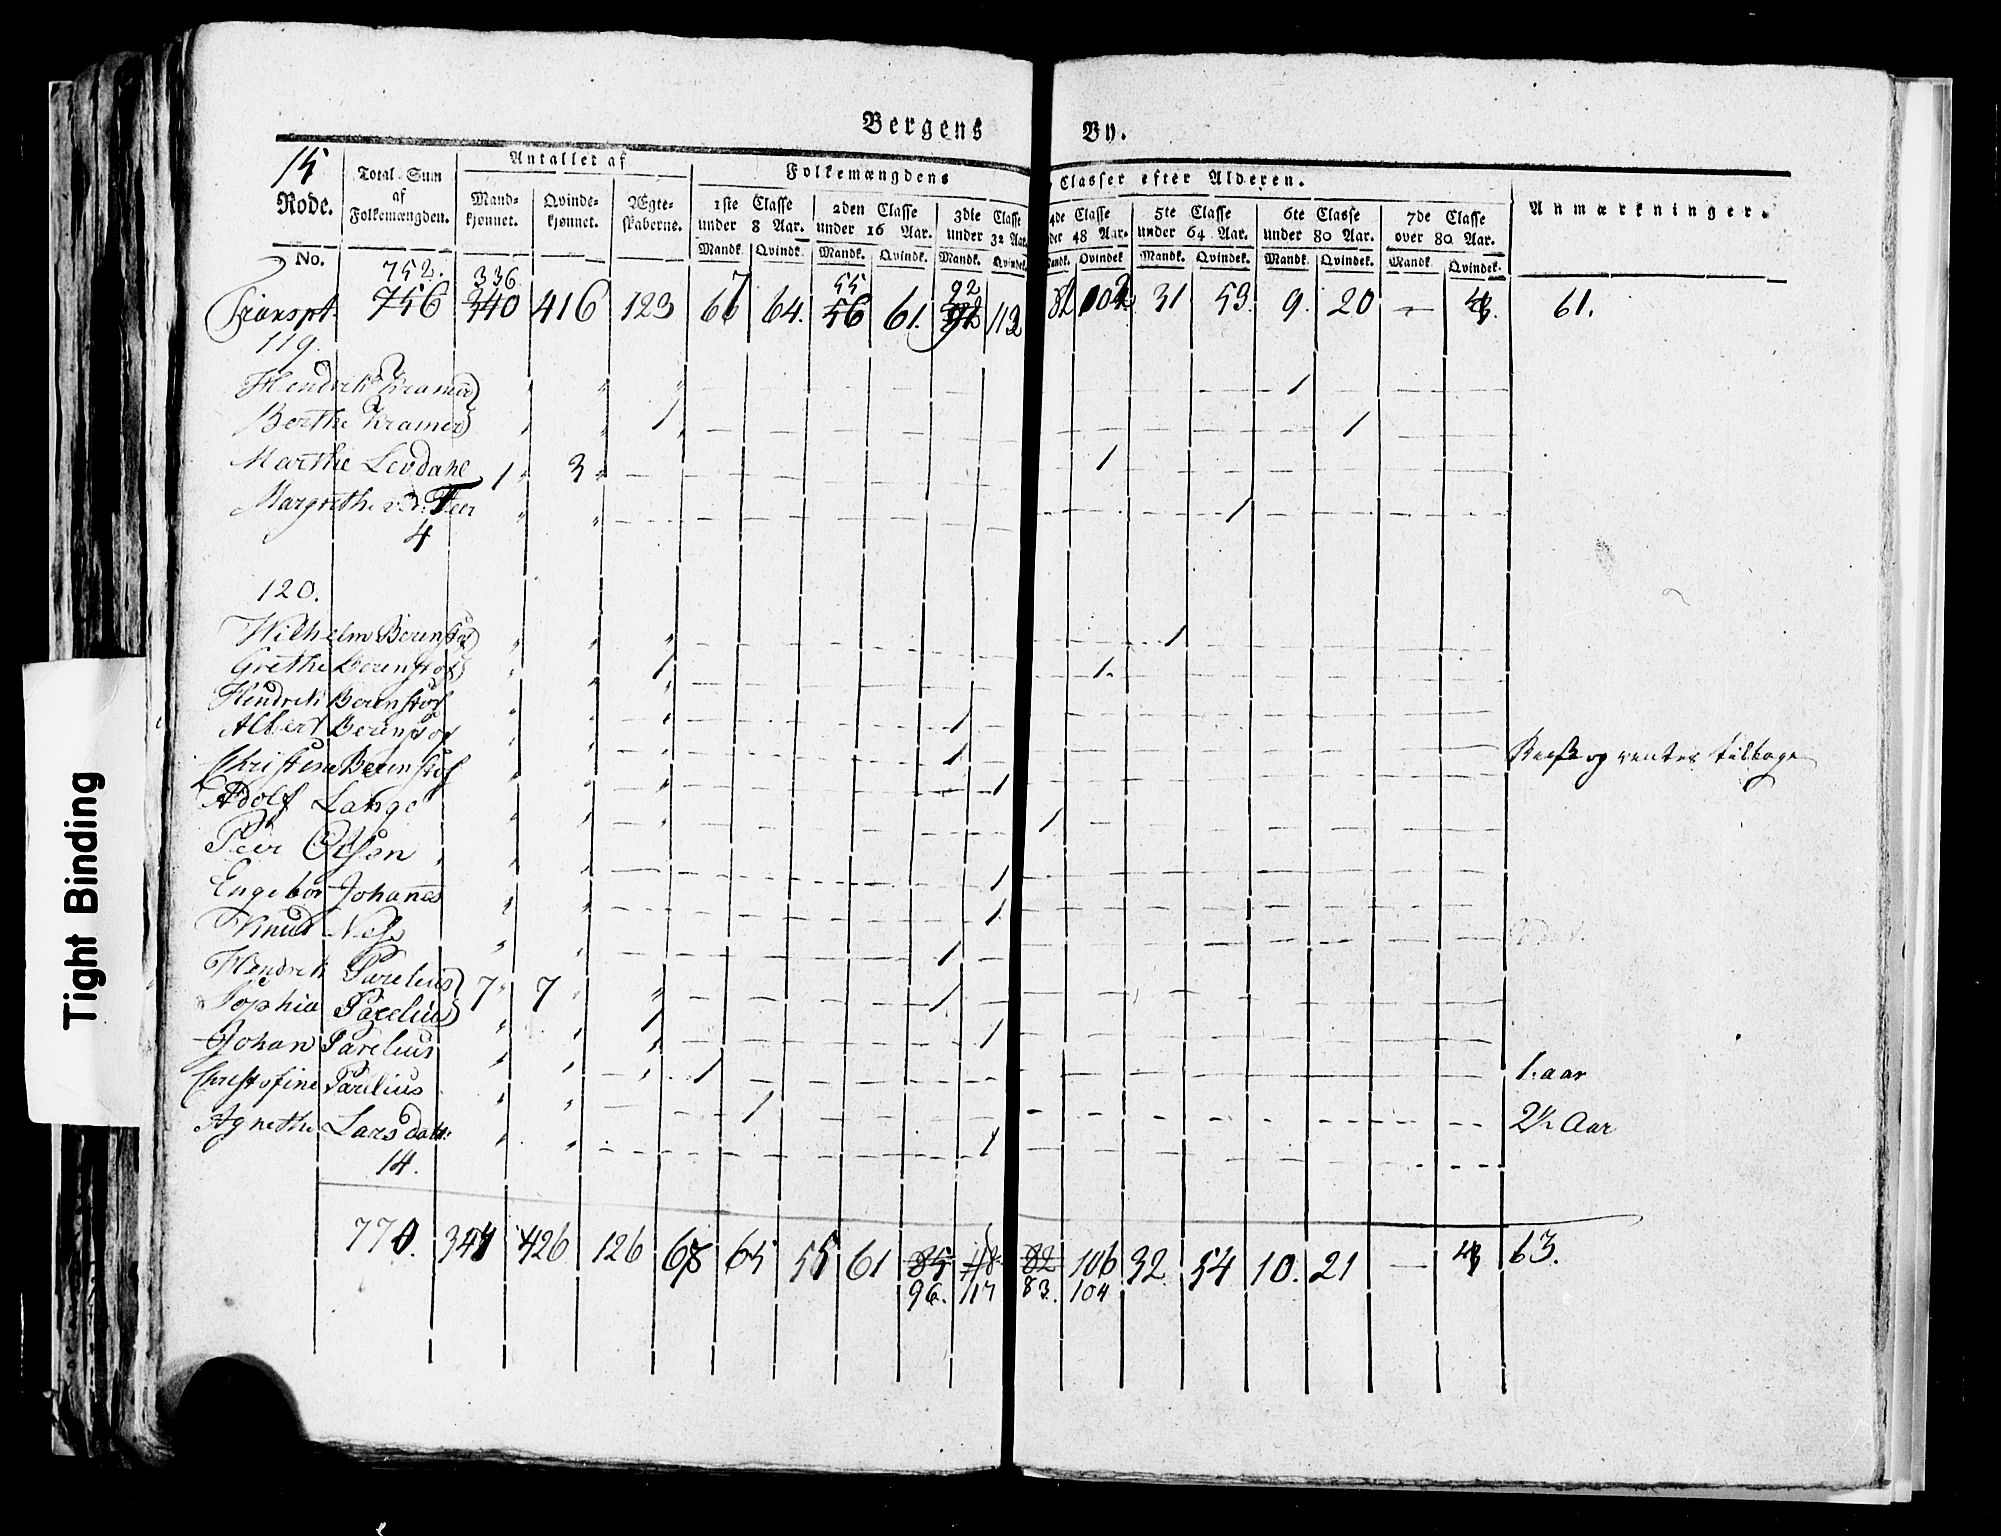 Bergens By.
15 Rode.
Total Sum af Folkemængden.
Antallet af
Mandkjønnet. Qvindekjønnet. Ægteskaberne.
Folkemængdens Classer efter Alderen.
1ste Classe under 8 Aar. 2den Classe under 16 Aar. 3die Classe under 32 Aar. 4de Classe under 48 Aar. 5te Classe under 64 Aar. 6te Classe under 80 Aar. 7de Classe over 80 Aar.
Anmærkninger.
No. Mandk. Qvindk. Mandk. Qvindk. Mandk. Qvindek. Mandk. Qvindek Mandk. Qvindek. Mandk. Qvindek. Mandk. Qvindek.
752. 336 7 55 92
Transpt. 756 340 416 123 64. 56 61. 112 82 102 31 53. 9. 20 — 61.
119.
Hendrik Kramer — 1 —
Berthe Kramer 1 — 1 —
Marthe Levdahl 1 3 — 1 —
Margrethe — 1 —
4
120.
Wilhelm Berenstof — 1 —
Grethe Berenstof 1 — 1. —
Hendrik Berenstof — 1 —
Albert Berenstof — 1 — og ventes tilbage
Christine Berenstof — 1 —
Adolf Lange — 1 —
Peer Olsen
Engebor Johanes — 1 —
Knud Nels — 1 —
Hendrik Parelius 7 7 — 1 —
Sophia Parelius 1 — 1 —
Johan Parelius 1 — 1. aar
Christofine Parelius — 1 — 2½ Aar
Agnethe Larsdatt: — 1 —
14.
770. 344 426 126 68 65 55 61 85 118 82 106 32 54 10. 21 — 63.
96. 117 83. 104
Tight Binding